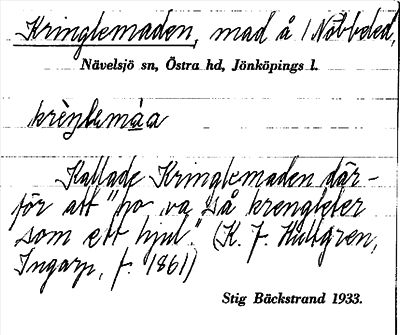 Kringlemaden, mad å /Nobbeled,
Nävelsjö sn, Östra hd, Jönköpings l.
krèŋlemàa
Kallade Kringlemaden där-
för att "ho va så krengleter
som ett hjul." (K. J. Hultgren,
Ingarp, f. 1861)
Stig Bäckstrand 1933.